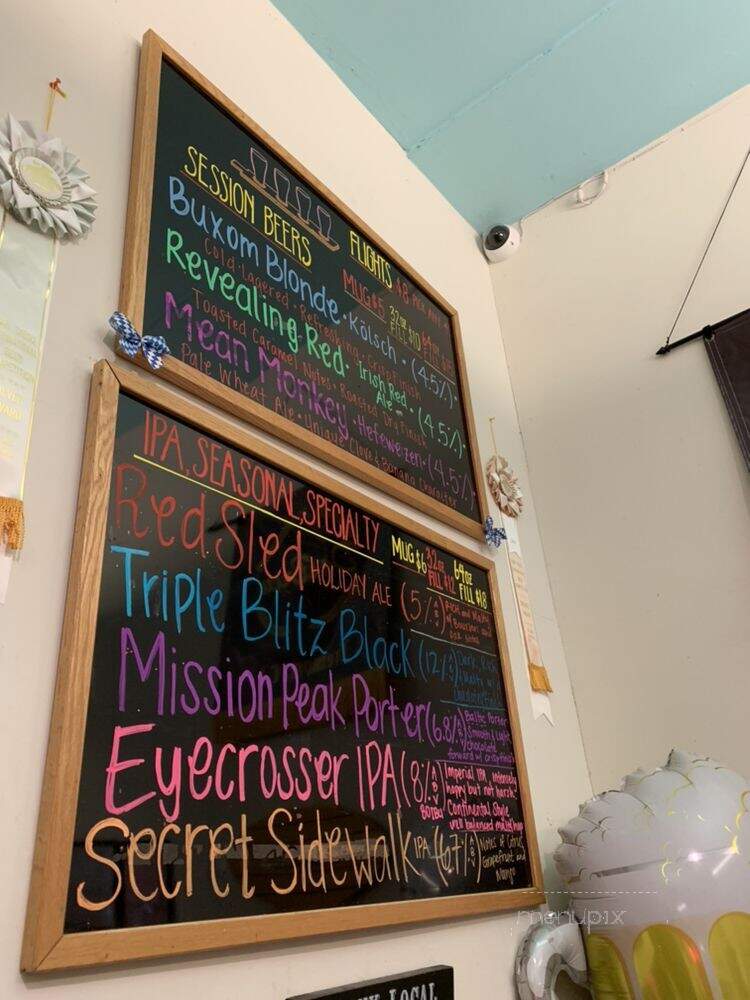 SESSION BEERS
FLIGHTS $8
MUG $5 32oz FILL $10 64oz FILL
Buxom Blonde · Kölsch · (4.5%)
Cold Lagered · Refreshing · Crisp Finish
Revealing Red · Irish Red Ale - (4.5%)
Toasted Caramel Notes · Roasted Dry Finish
Mean Monkey · Hefeweizen · (4.5%)
Pale Wheat Ale · Unique Clove & Banana Character
IPA, SEASONAL, SPECIALTY
MUG $6 32oz FILL $12 64oz FILL $18
Red Sled HOLIDAY ALE (5% ABV) Rich and Malty w/ Bourbon and Oak Notes
Triple Blitz Black (12%) Dark, Rich
Mission Peak Porter (6.8%) Baltic Porter Smooth & Light Chocolate forward w/ crisp finish
Eyecrosser IPA (8% ABV) Imperial IPA, intensely hoppy but not harsh. Continental Style well balanced malt & hop
80 IBU
Secret Sidewalk IPA (6.7% ABV) Notes of Citrus, Grapefruit and Mango
LOCAL
menupix